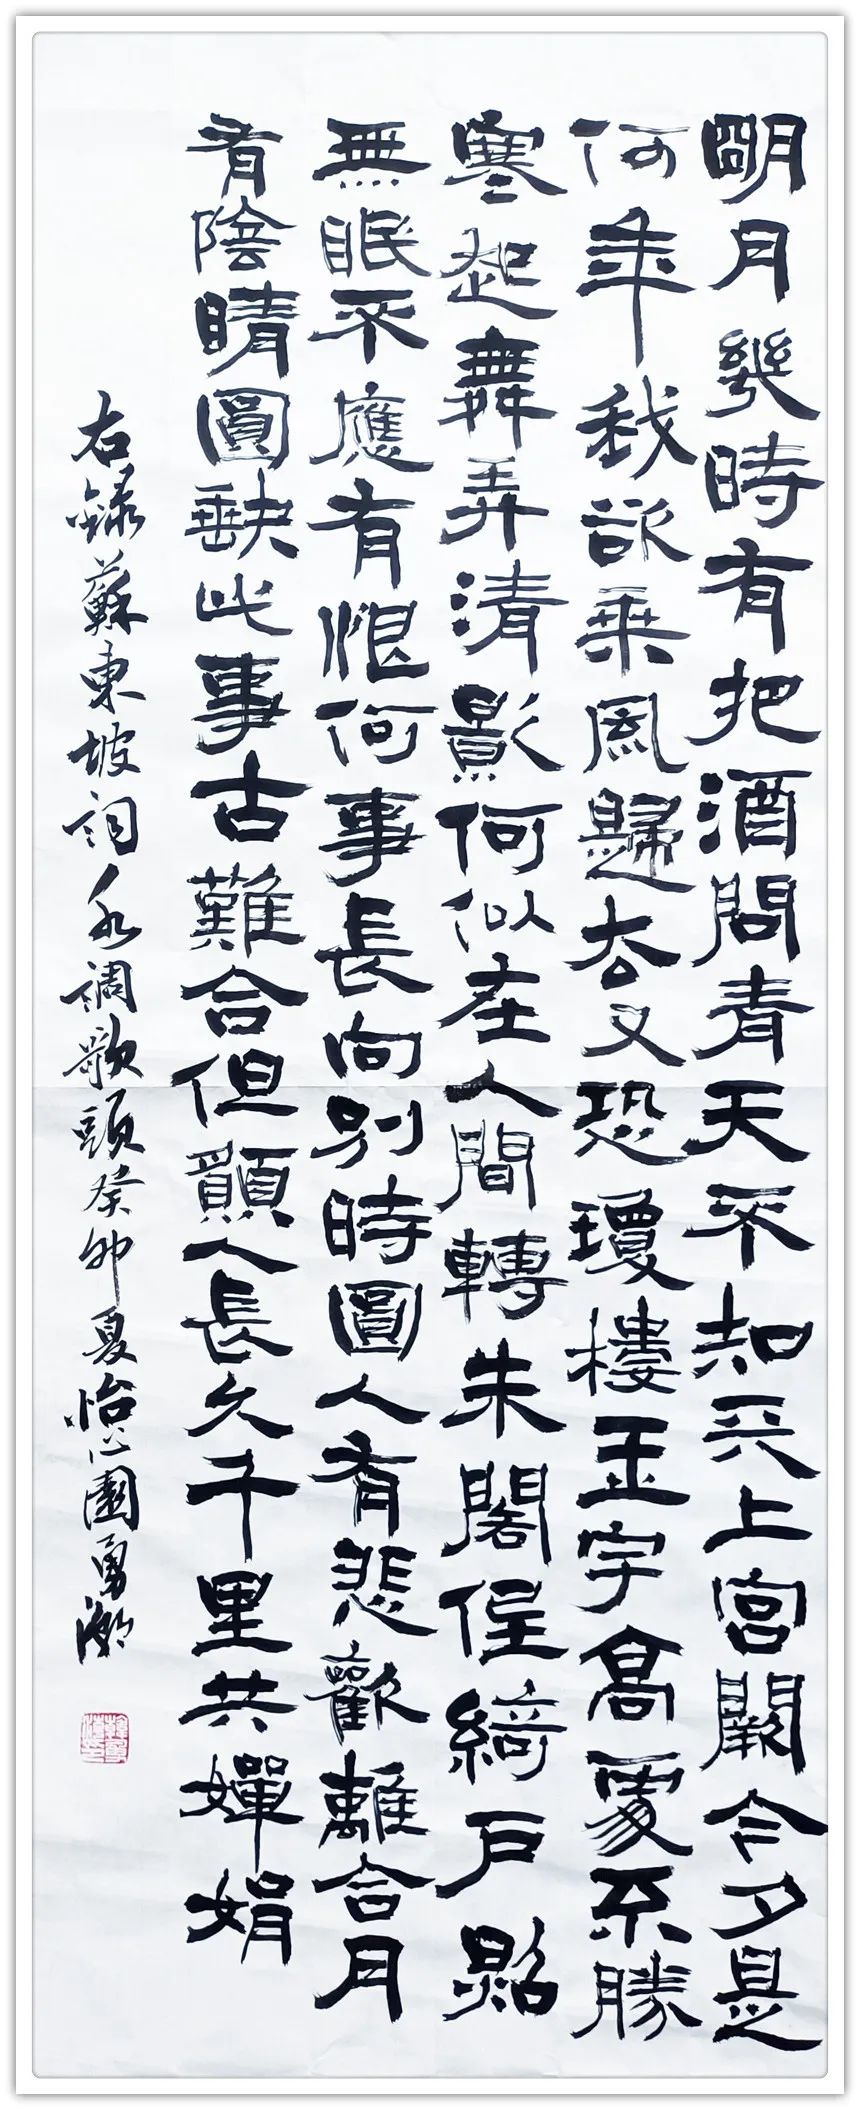 明月幾時有把酒問青天不知天上宮闕今夕是
何年我欲乘風歸去又恐瓊樓玉宇高處不勝
寒起舞弄清影何似在人間轉朱閣低綺戶照
無眠不應有恨何事長向別時圓人有悲歡離合月
有陰晴圓缺此事古難合但願人長久千里共嬋娟
右錄蘇東坡詞水調歌頭癸卯夏怡心園勇潮